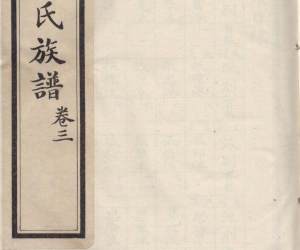 氏族譜
卷三